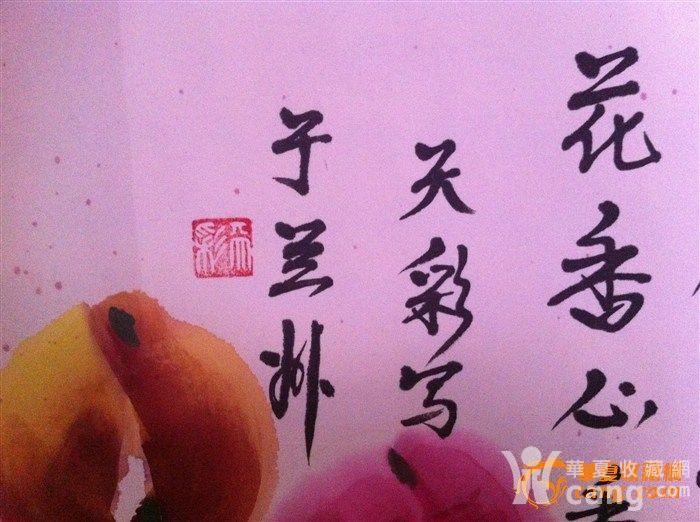 花香心
天彩写
于兰州
天彩
華夏收藏網
cang.com